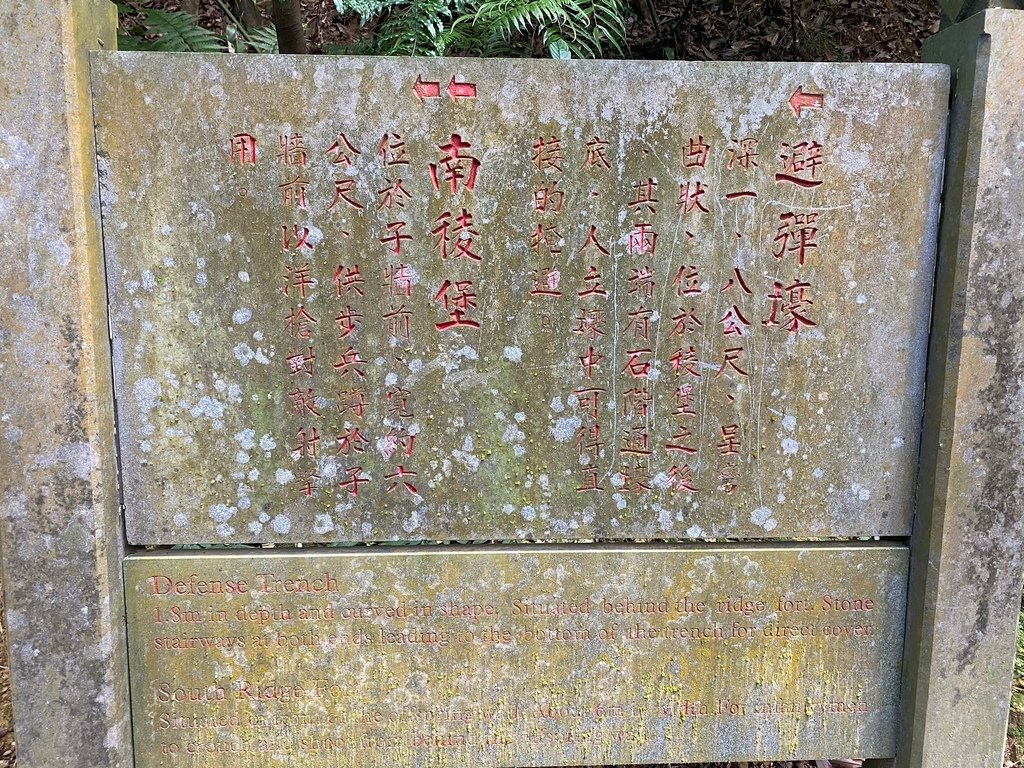 避彈壕
深一、八公尺、呈彎
曲狀、位於稜堡之後
、其兩端有石階通壕
底、人立壕中可得直
接的掩
南稜堡
位於子牆前、寬約六
公尺、供步兵蹲於子
牆前以洋槍對敵射擊
用。
Defense Trench
1.8m in depth and curved in shape. Situated behind the ridge fort. Stone
stairways at both ends leading to the bottom of the trench for direct cover.
South Ridge Fort
Situated in front of the About 6m in width. For infantryman
to crouch and shoot from behind the